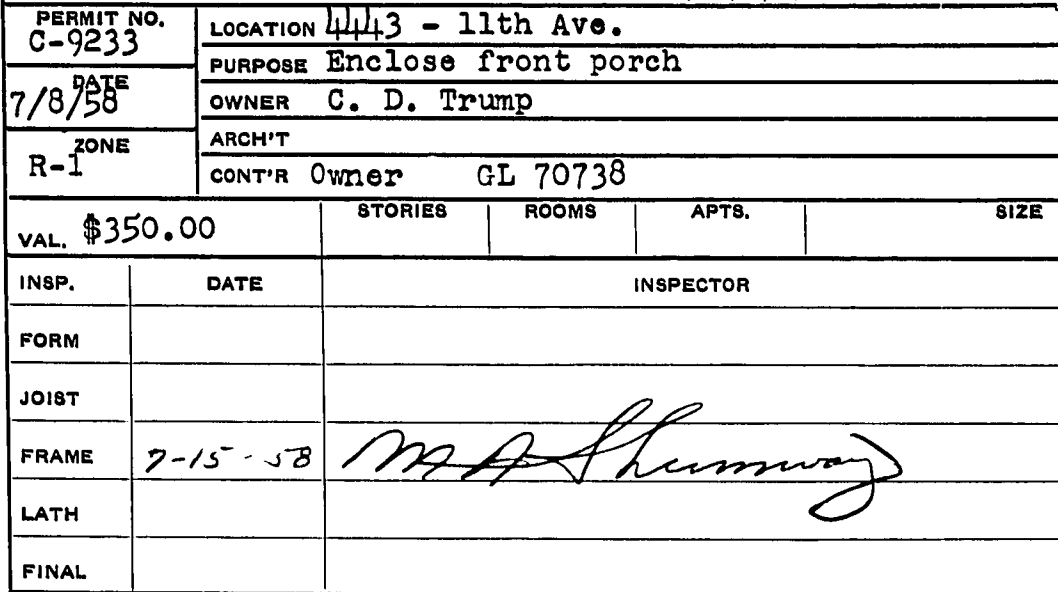 PERMIT NO. C-9233
LOCATION 4443 - 11th Ave.
PURPOSE Enclose front porch
DATE 7/8/58
OWNER C. D. Trump
ARCH'T
ZONE R-1
CONT'R Owner GL 70738
VAL. $350.00 STORIES ROOMS APTS. SIZE
INSP. DATE INSPECTOR
FORM
JOIST
FRAME 7-15-58 M A Shumway
LATH
FINAL